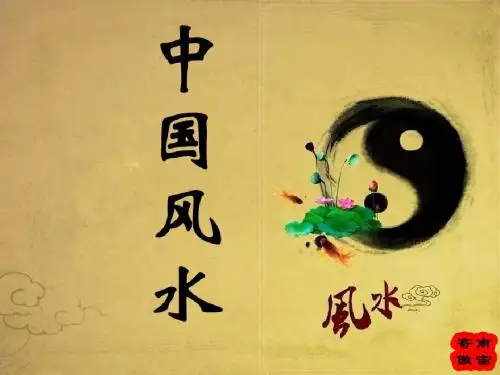 中国风水
風水